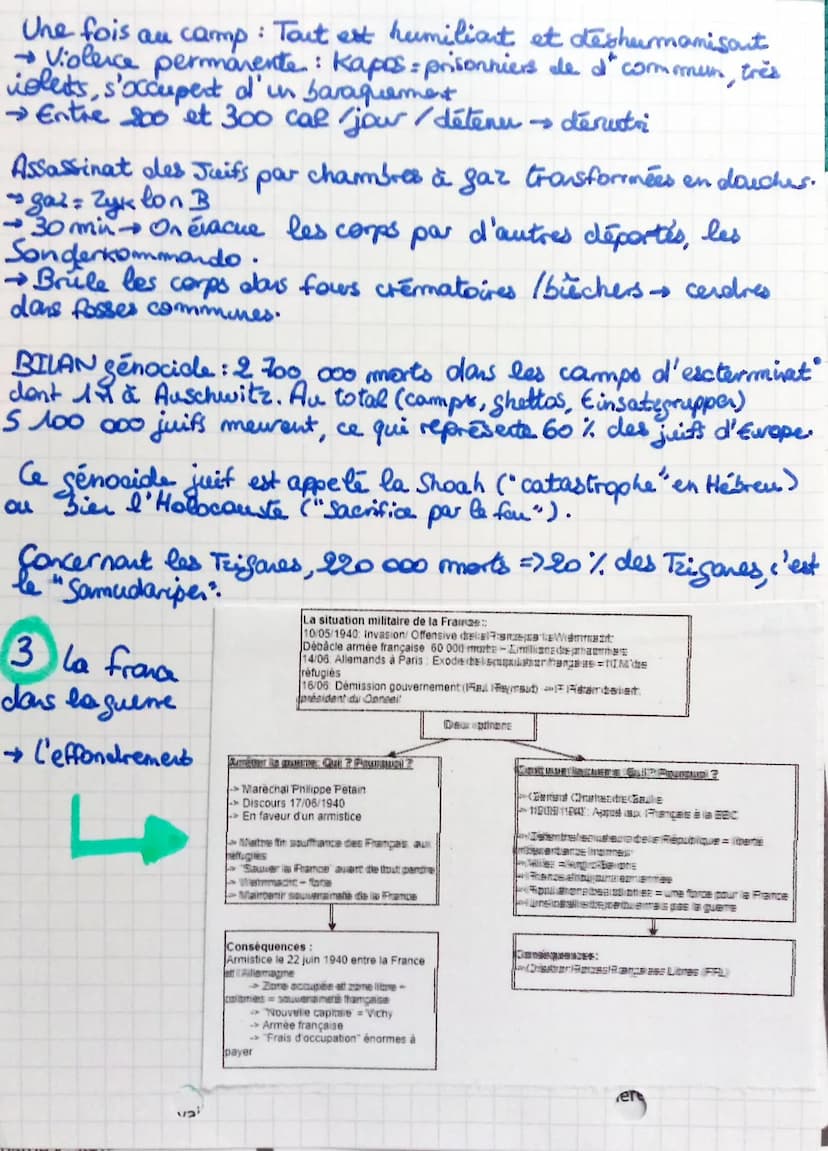 Une fois au camp : Tout est humiliant et déshumanisant
→ Violence permanente : Kapos = prisonniers de dt commun, très
violents, s'occupent d'un baraquement
→ Entre 200 et 300 cal /jour / détenu → dénutri
Assassinat des Juifs par chambres à gaz transformées en douches.
→ gaz = Zyklon B
→ 30 min → On évacue les corps par d'autres déportés, les
Sonderkommando.
→ Brûle les corps dans fours crématoires / bûchers → cendres
dans fosses communes.
BILAN génocide : 2 700 000 morts dans les camps d'exterminat°
dont 1 à Auschwitz. Au total (camps, ghettos, Einsatzgruppen)
5 100 000 juifs meurent, ce qui représente 60 % des juifs d'Europe.
Ce génocide juif est appelé la Shoah ("catastrophe" en Hébreu)
ou bien l'Holocauste ("Sacrifice par le feu").
Concernant les Tziganes, 220 000 morts => 20 % des Tziganes, c'est
le "Samudaripen".
3 La France
dans la guerre
→ L'effondrement
La situation militaire de la France :
10/05/1940: Invasion/ Offensive
Débâcle armée française 60 000 morts –
14/06: Allemands à Paris : Exode
réfugiés
16/06: Démission gouvernement (Paul Reynaud)
président du Conseil
Deux options
Arrêter la guerre: Qui ? Pourquoi ?
-> Maréchal Philippe Pétain
-> Discours 17/06/1940
-> En faveur d'un armistice
-> Mettre fin souffrance des Français, aux
réfugiés
-> "Sauver la France" avant de tout perdre
-> Wehrmacht – forte
-> Maintenir souveraineté de la France
Conséquences :
Armistice le 22 juin 1940 entre la France
et l'Allemagne
-> Zone occupée et zone libre –
colonies = souveraineté française
-> "Nouvelle capitale" = Vichy
-> Armée française
-> "Frais d'occupation" énormes à
payer
Continuer la guerre: Qui ? Pourquoi ?
-> Général Charles de Gaulle
-> Appel aux Français à la BBC
République = liberté
= une force pour la France
pas la guerre
Conséquences:
Forces Françaises Libres (FFL)